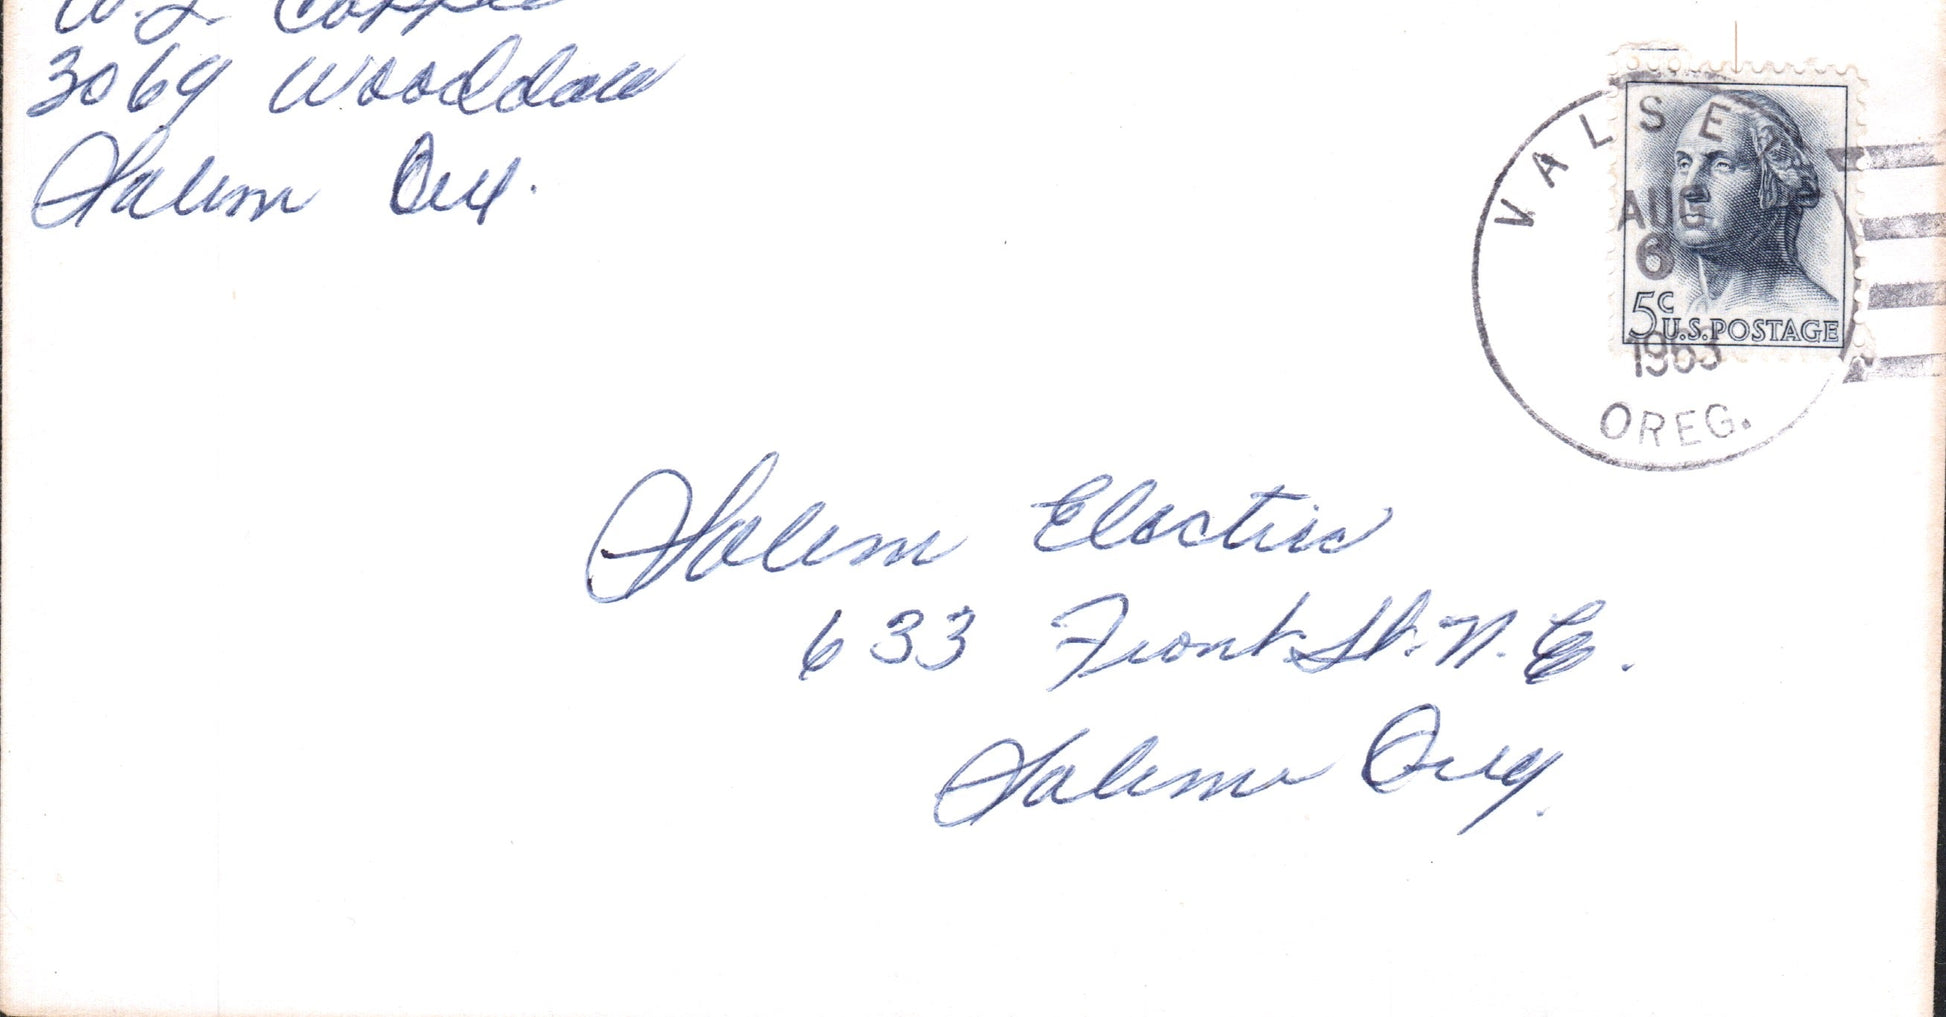 W. L. 
3069
Salem Oreg.
VALSETZ
AUG
6
1963
OREG.
5c
U.S. POSTAGE
Salem Electric
633 Front St. N.E.
Salem Oreg.